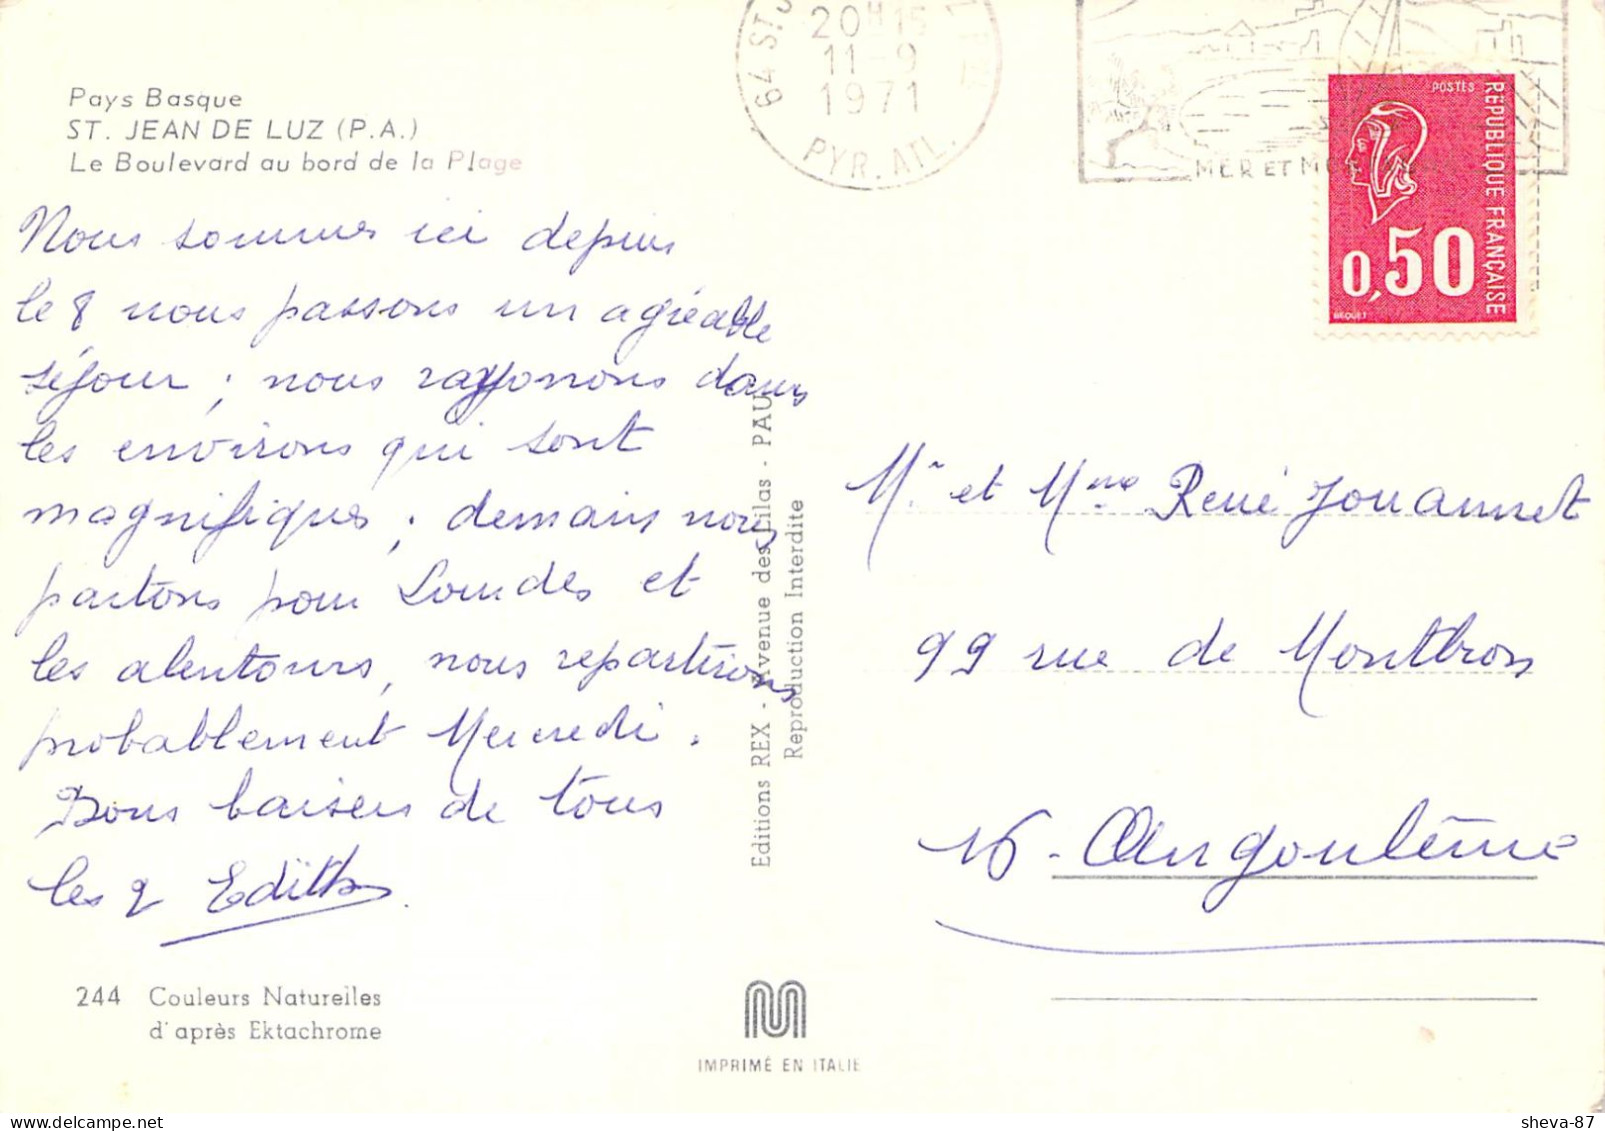 Pays Basque
ST. JEAN DE LUZ (P.A.)
Le Boulevard au bord de la Plage
Nous sommes ici depuis
le 8 nous passons un agréable
séjour ; nous rayonnons dans
les environs qui sont
magnifiques ; demain nous
partons pour Lourdes et
les alentours, nous repartirons
probablement Mercredi.
Bons baisers de tous
les 2 Edith
244 Couleurs Naturelles
d'après Ektachrome
Editions REX - Avenue des Lilas - PAU
Reproduction Interdite
IMPRIMÉ EN ITALIE
64 ST.J
20H15
11-9
1971
PYR. ATL.
MER ET
POSTES
RÉPUBLIQUE FRANÇAISE
0,50
BEQUET
Mr et Mme René Jouannet
99 rue de Montbron
16 - Angoulême
sheva-87